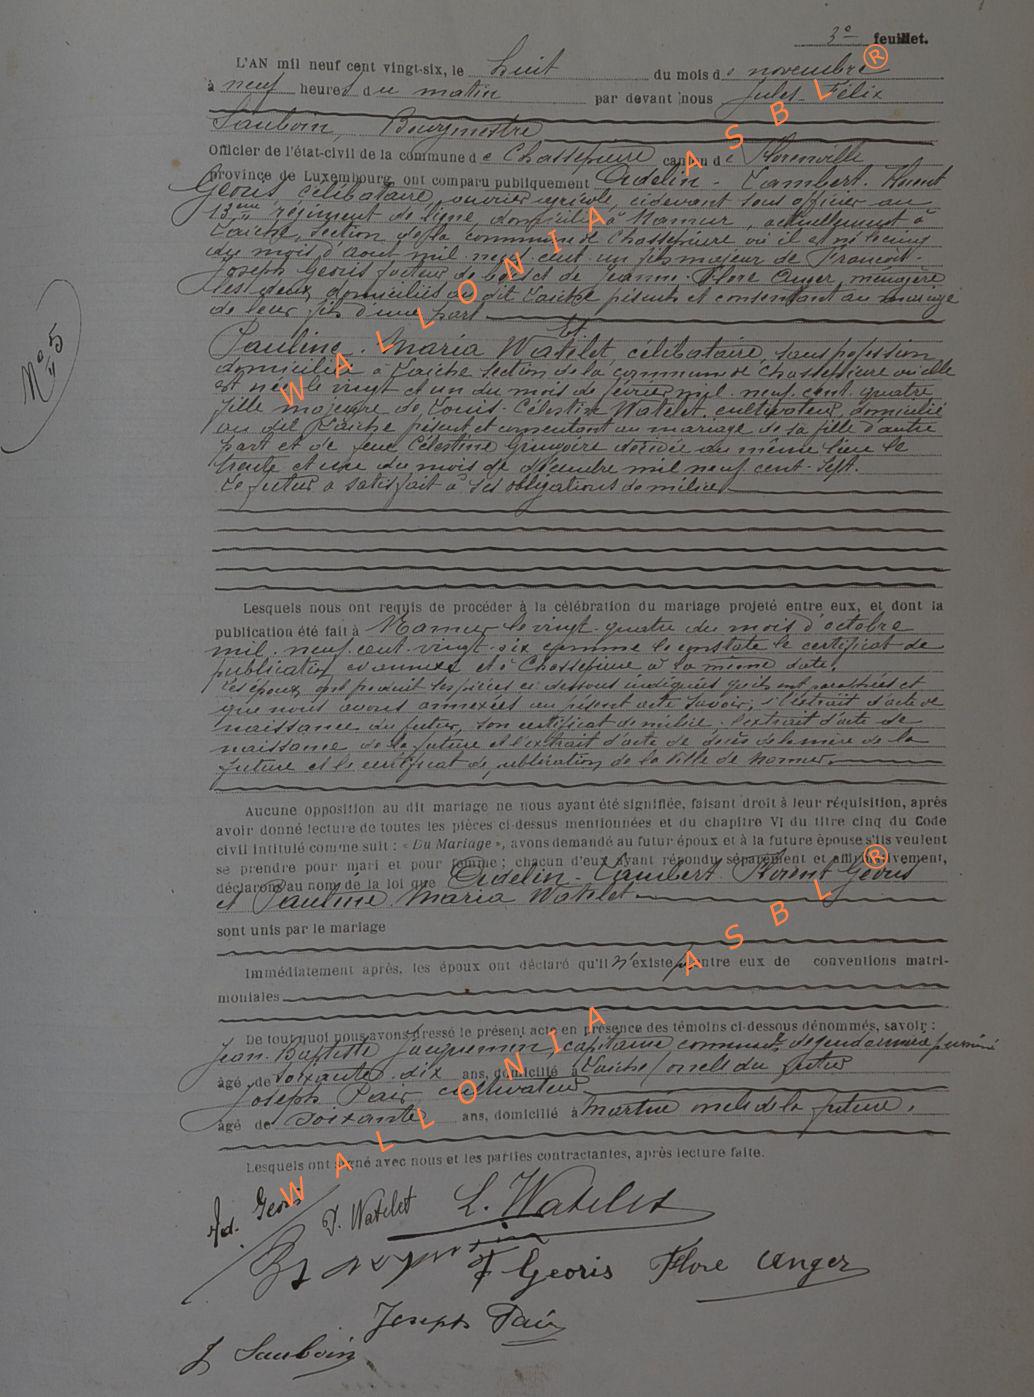 3e feuillet.
L'AN mil neuf cent vingt-six, le huit du mois de novembre
à neuf heures du matin par devant nous Jules-Félix
Sauboin, Bourgmestre
Officier de l'état-civil de la commune de Chassepierre canton de Florenville
province de Luxembourg, ont comparu publiquement Adelin-Lambert-Florent
Georis célibataire, ouvrier agricole, cidevant sous officier au
13me régiment de ligne, domicilié à Namur, actuellement à
Laiche, section de la commune de Chassepierre où il est né le cinq
du mois d'aout mil neuf cent un fils majeur de François-
Joseph Georis facteur de bois et de Jeanne-Flore Anger, ménagère
les deux domiciliés au dit Laiche présents et consentant au mariage
de leur fils d'une part
Et
Pauline-Maria Watelet, célibataire, sans profession
domiciliée à Laiche section de la commune de Chassepierre où elle
est née le vingt et un du mois de février mil-neuf-cent-quatre
fille majeure de Louis-Célestin Watelet, cultivateur, domicilié
au dit Laiche présent et consentant au mariage de sa fille d'autre
part et de feue Célestine Gringoire décédée au même lieu le
trente et un du mois de décembre mil neuf cent-sept.
Le futur a satisfait à ses obligations de milice
N° 5
Lesquels nous ont requis de procéder à la célébration du mariage projeté entre eux, et dont la
publication été fait à Namur le vingt-quatre du mois d'octobre
mil-neuf-cent-vingt-six comme le constate le certificat de
publication ci annexé et à Chassepierre à la même date.
Les époux ont produit les pièces ci dessous indiquées qu'ils ont paraphées et
que nous avons annexées au présent acte savoir; 1° l'extrait d'acte de
naissance du futur, son certificat de milice, l'extrait d'acte de
naissance de la future et l'extrait d'acte de décès de la mère de la
future et le certificat de publication de la ville de Namur.
Aucune opposition au dit mariage ne nous ayant été signifiée, faisant droit à leur réquisition, après
avoir donné lecture de toutes les pièces ci-dessus mentionnées et du chapitre VI du titre cinq du Code
civil intitulé comme suit : « Du Mariage », avons demandé au futur époux et à la future épouse s'ils veulent
se prendre pour mari et pour femme ; chacun d'eux ayant répondu séparément et affirmativement,
déclarons au nom de la loi que Adelin-Lambert-Florent Georis
et Pauline-Maria Watelet
sont unis par le mariage
Immédiatement après, les époux ont déclaré qu'il n'existe pas entre eux de conventions matri-
moniales
De tout quoi nous avons dressé le présent acte en présence des témoins ci-dessous dénommés, savoir :
Jean-Baptiste Jacquemin, capitaine command. de gendarmerie pensionné
âgé de soixante-dix ans, domicilié à Laiche, oncle du futur
Joseph Pair, cultivateur
âgé de soixante ans, domicilié à Martué oncle de la future.
Lesquels ont signé avec nous et les parties contractantes, après lecture faite.
Ad. Georis P. Watelet L. Watelet
F Georis Flore Anger
Joseph Pair
J Sauboin
WALLONIA ASBL®
WALLONIA ASBL®